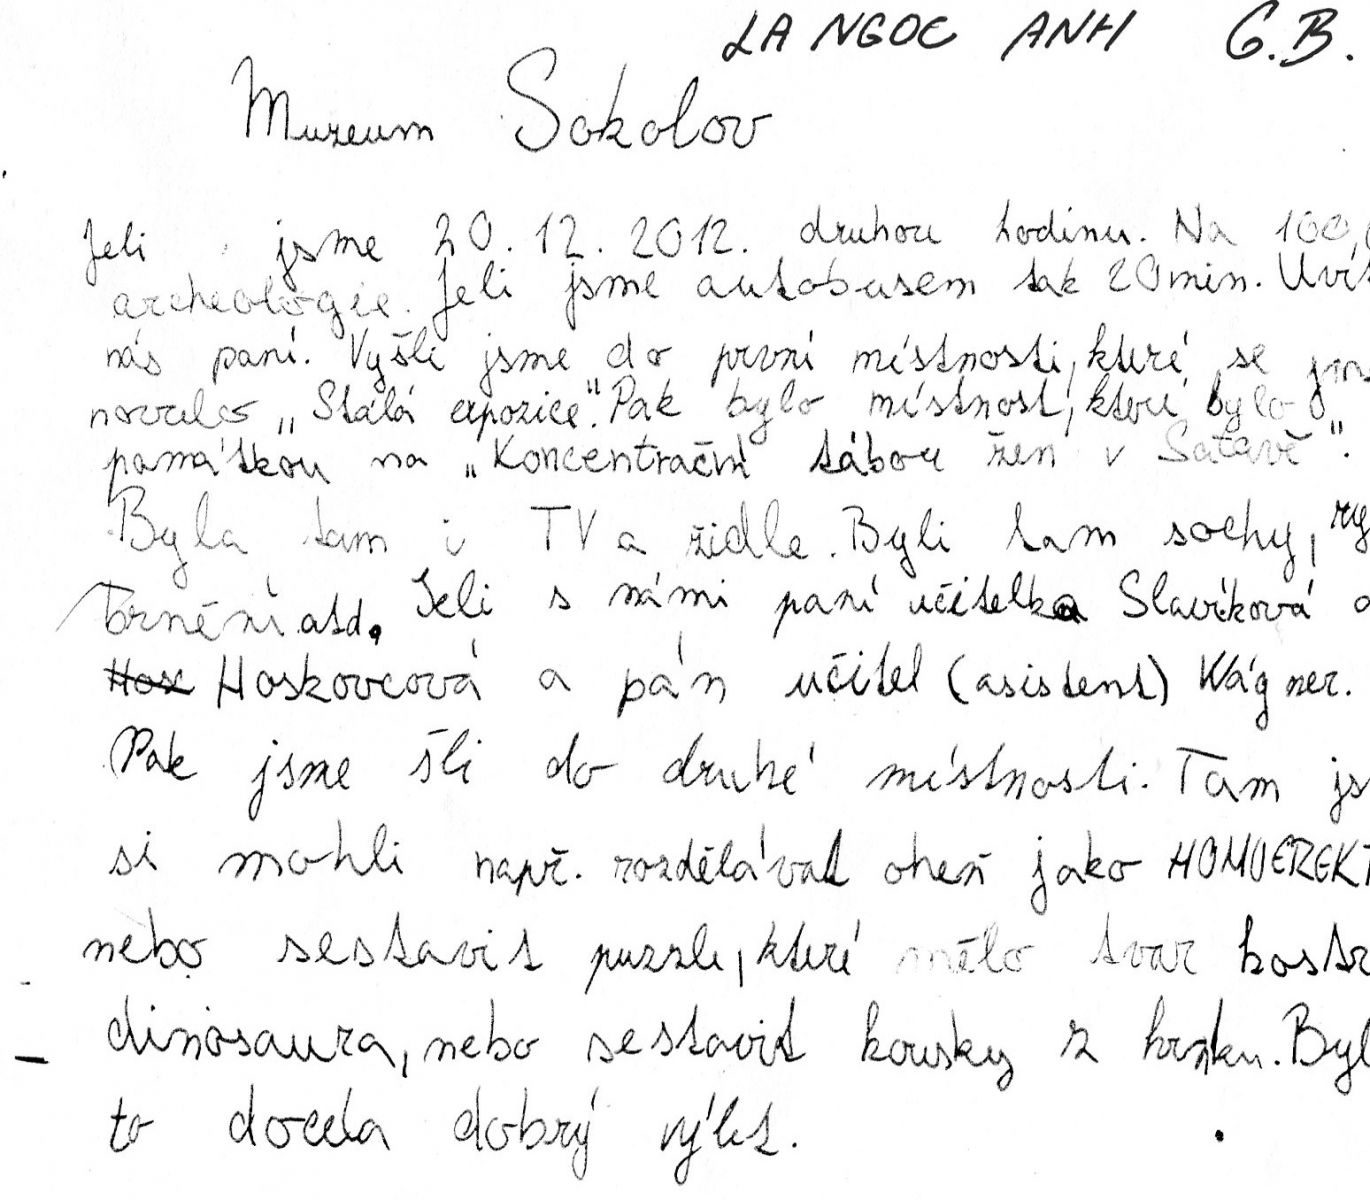 LA NGOC ANH 6.B.
Muzeum Sokolov
Jeli jsme 20.12.2012. druhou hodinu. Na 100,
archeologie. Jeli jsme autobusem tak 20min. Uvít
nás paní. Vyšli jsme do první místnosti, které se jme
novalo „Stálá expozice". Pak bylo místnost, které bylo
památkou na „Koncentrační tábou žen v Satavě".
Byla tam i TV a židle. Byli tam sochy, ry
trnění atd. Jeli s námi paní učitelka Slavíková a
Hoskovcová a pán učitel (asistent) Wágner.
Pak jsme šli do druhé místnosti. Tam js
si mohli např. rozdělávat oheň jako HOMOEREKT
nebo sestavit puzzle, které mělo tvar kostr
dinosaura, nebo sestavit kousky z hrnku. Byl
to docela dobrý výlet.